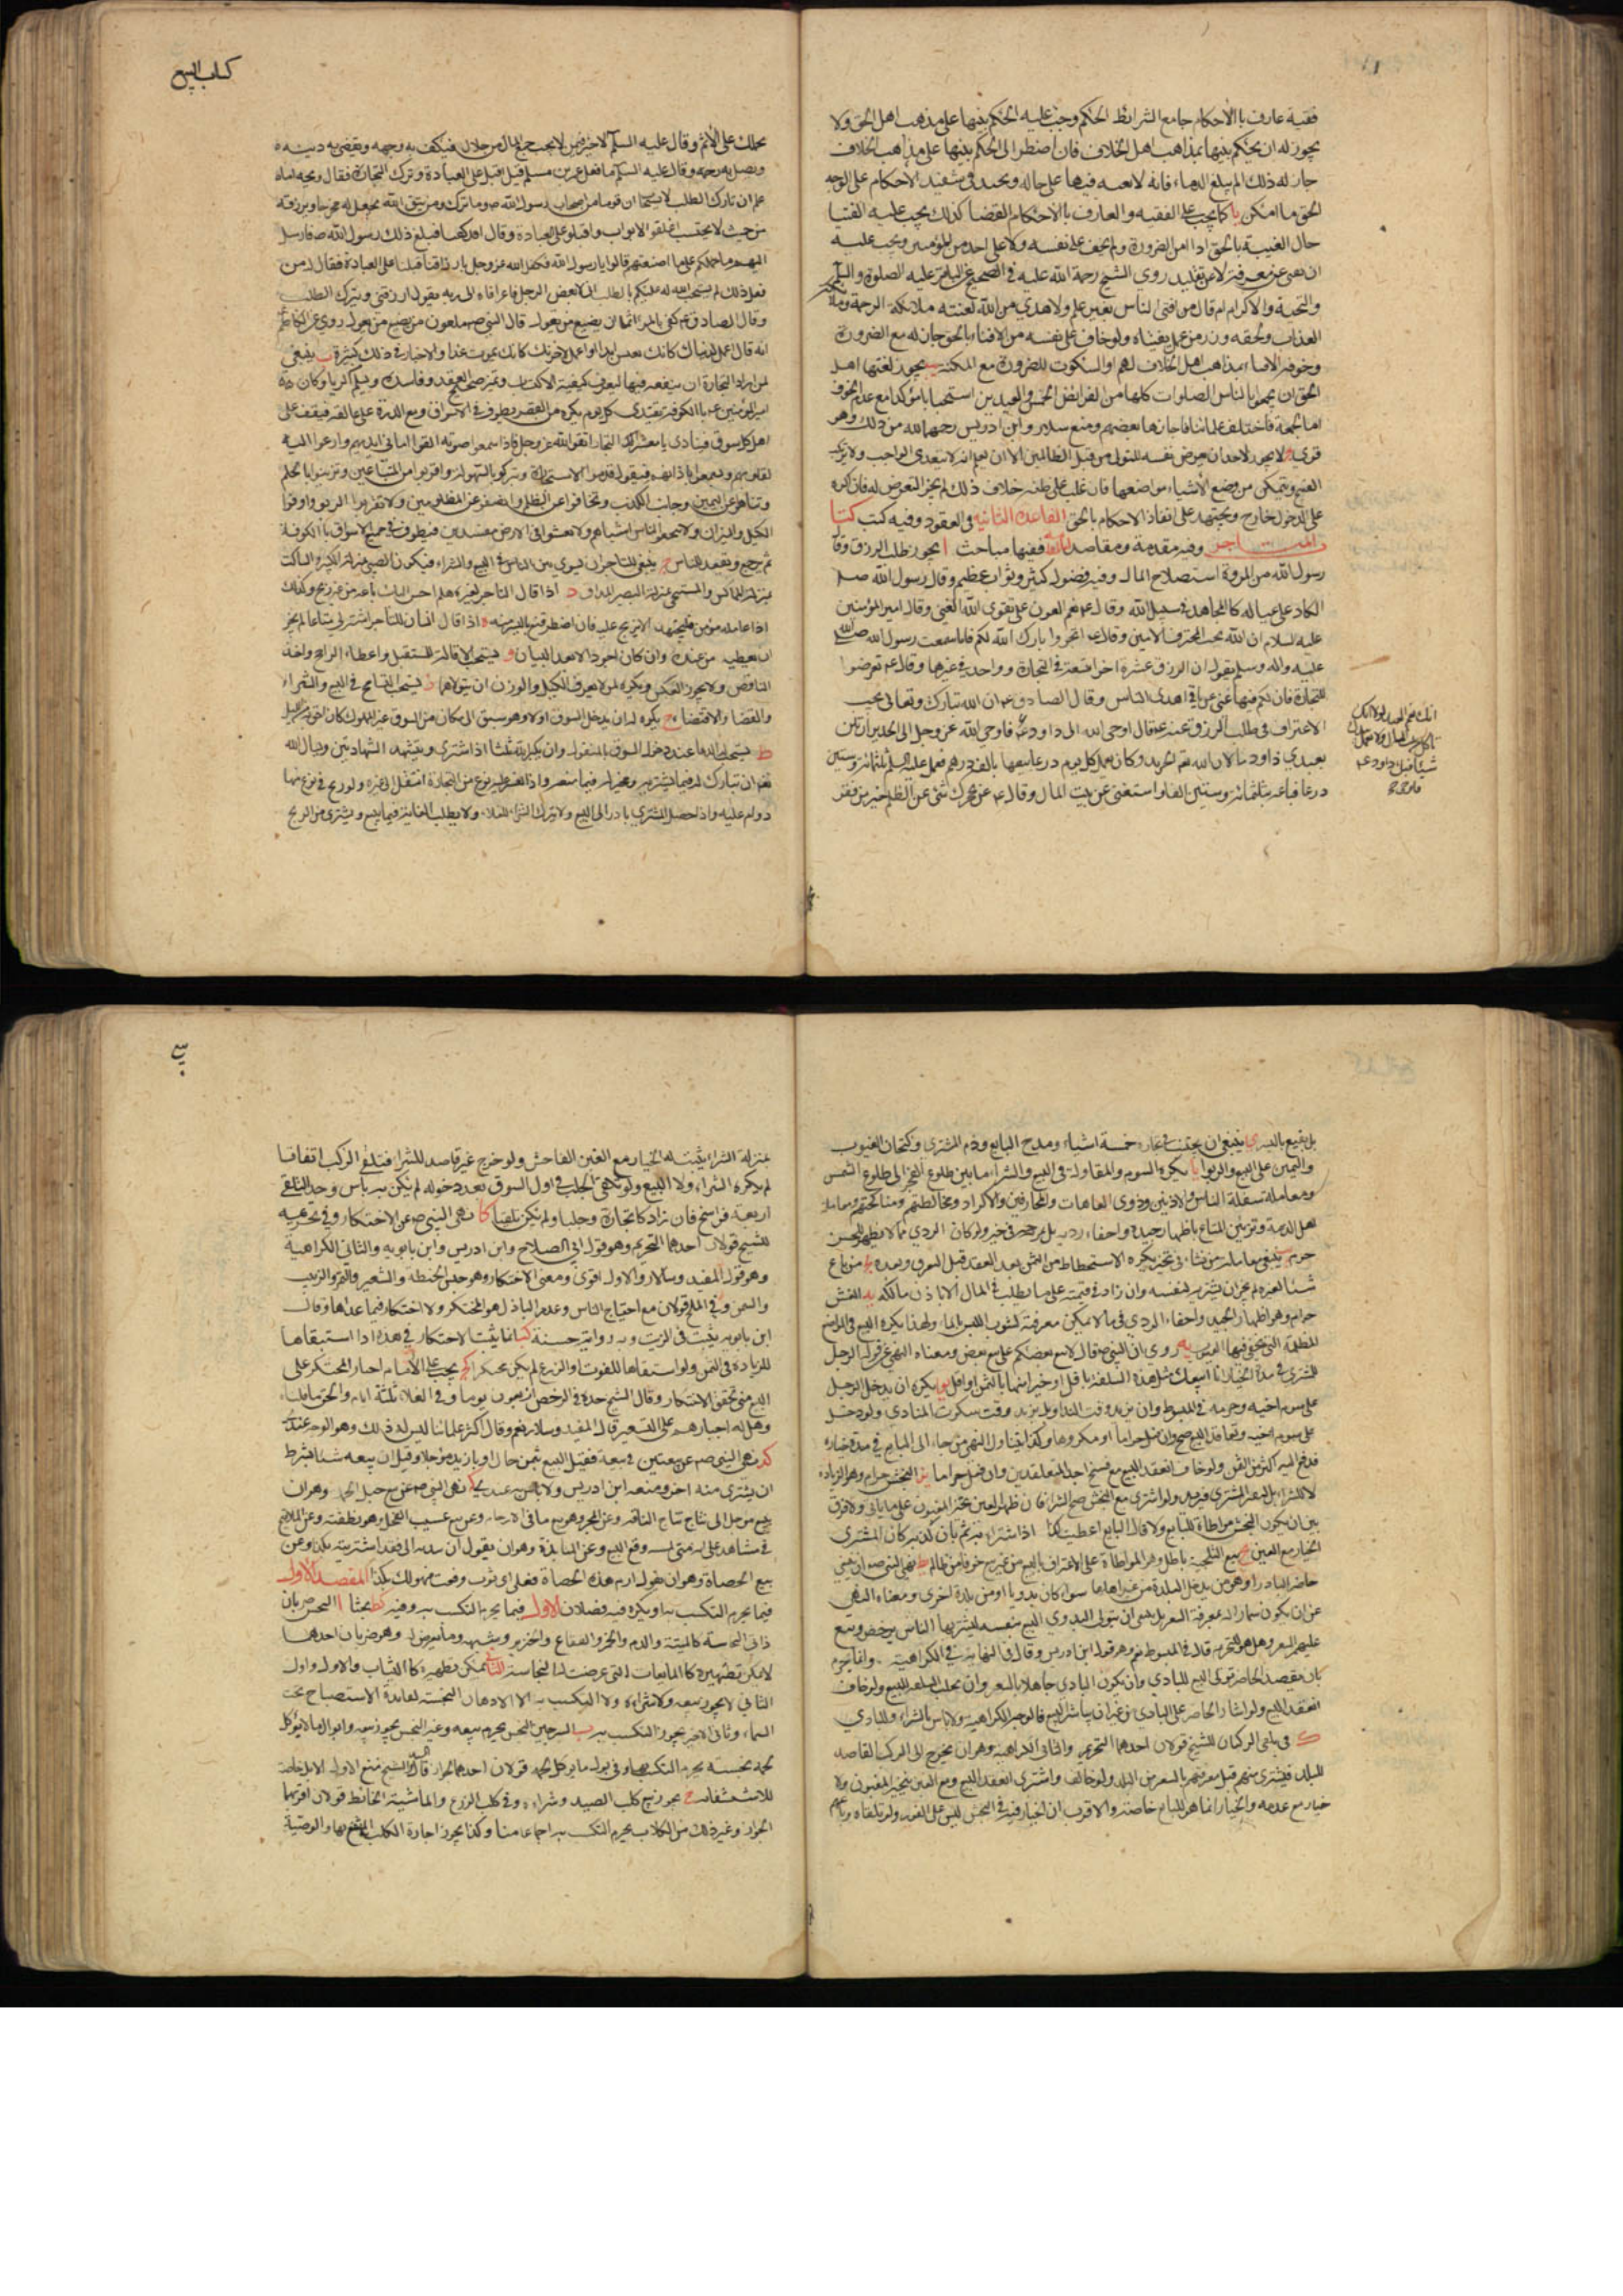 فقيه عارف بالأحكام جامع الشرائط الحكم وجب عليه الحكم بينهما على مذهب اهل الحق ولا
يجوز له ان يحكم بينهما بمذاهب اهل الخلاف فان اضطر الى الحكم بينهما على مذاهب الخلاف
جاز له ذلك ما لم يبلغ الدماء فانه لا تقية فيها على حاله ويجتهد في تنفيذ الاحكام على الوجه
الحق ما امكن يا كما يجب على الفقيه والعارف بالاحكام القضا كذلك يجب عليه الفتيا
حال الغيبة بالحق اذا امن الضرورة ولم يخف على نفسه ولا على احد من المؤمنين ويجب عليه
ان يفتي عن معرفة لا عن تقليد روى الشيخ رحمة الله عليه في الصحيح عن الباقر عليه الصلوة والسلم
والتحية والاكرام قال من افتى الناس بغير علم ولا هدى من الله لعنته ملائكة الرحمة وملائكة
العذاب ولحقه وزر من عمل بفتياه ولو خاف على نفسه من الافتاء بالحق جاز له مع الضرورة
وخوفه الافتاء بمذاهب اهل الخلاف لهم او السكوت للضرورة مع المكنة يب يجوز لفقهاء اهل
الحق ان يجمعوا بالناس الصلوات كلها من الفرائض الخمس والعيدين استحبابا مؤكدا مع عدم الخوف
اما الجمعة فاختلف علمائنا فاجازها بعضهم ومنع سلار وابن ادريس رحمهما الله من ذلك وهو
قوي يج لا يجوز لاحد ان يعرض نفسه للتولي من قبل الظالمين الا ان يعلم انه لا يتعدى الواجب ولا يرتكب
القبيح ويتمكن من وضع الأشياء مواضعها فان غلب على ظنه خلاف ذلك لم يجز التعرض له فان اكره
على الدخول خارج ويجتهد على انفاذ الاحكام بالحق القاعدة الثانية في العقود وفيه كتب كتاب
المتاجر وفيه مقدمة ومقاصد المقدمة ففيها مباحث ا يجوز طلب الرزق وقال
رسول الله من المروة استصلاح المال وفيه فضل كثير وثواب عظيم وقال رسول الله صلى
الكاد على عياله كالمجاهد في سبيل الله وقال ع نعم العون على تقوى الله الغنى وقال امير المؤمنين
عليه السلام ان الله يحب المحترف الامين وقال ع اتجروا بارك الله لكم فاني سمعت رسول الله صلى الله
عليه واله وسلم يقول ان الرزق عشرة اجزا تسعة في التجارة وواحد في غيرها وقال ع تعرضوا
للتجارة فان لكم فيها غنى عما في ايدي الناس وقال الصادق ع ان الله تبارك وتعالى يحب
الاغتراب في طلب الرزق وعنه ع قال اوحى الله الى داود ع فاوحى الله عز وجل الى الحديد ان لن
لعبدي داود فالان الله تع الحديد وكان يعمل كل يوم درعا يبيعها بالف درهم فعمل عليه السلم ثلثمائة وستين
درعا فباعه بثلثمائة وستين الفا واستغنى عن بيت المال وقال ع غنى يحجزك عن الظلم خير من فقر
انك نعم العبد لولا انك
تأكل من بيت المال ولا تعمل
شيئا فبكى داود ع
كتاب البيع
يحملك على الاثم وقال عليه السلم لا خير فيمن لا يحب جمع المال من حلال فيكف به وجهه ويقضي به دينه
ويصل به رحمه وقال عليه السلم ما فعل عمر بن مسلم قيل اقبل على العبادة وترك التجارة فقال ويحه اما
علم ان تارك الطلب لا يستجاب ان قوما من اصحاب رسول الله ص لما نزلت ومن يتق الله يجعل له مخرجا ويرزقه
من حيث لا يحتسب اغلقوا الابواب واقبلوا على العبادة وقالوا قد كفينا فبلغ ذلك رسول الله ص فارسل
اليهم ما حملكم على ما صنعتم قالوا يا رسول الله تكفل الله عز وجل بارزاقنا فاقبلنا على العبادة فقال من
فعل ذلك لم يستجب الله له عليكم بالطلب اني لابغض الرجل فاغرا فاه الى ربه يقول ارزقني ويترك الطلب
وقال الصادق ع كفى بالمرء اثما ان يضيع من يعول قال النبي ص ملعون من يضيع من يعول
انه قال اعمل لدنياك كانك تعيش ابدا واعمل لاخرتك كانك تموت غدا والاخبار في ذلك كثيرة ب ينبغي
لمن اراد التجارة ان يتفقه فيها ليعرف كيفية الاكتساب ويميز صحيح العقد وفاسده ويسلم من الربا وكان
امير المؤمنين ع بالكوفة يغتدي كل يوم بكرة من القصر يطوف في الاسواق ومعه الدرة على عاتقه فيقف على
اهل كل سوق فينادي يا معشر التجار اتقوا الله عز وجل فاذا سمعوا صوته القوا ما في ايديهم وارعوا اليه
بقلوبهم وسمعوا باذانهم فيقول قدموا الاستخارة وتبركوا بالسهولة واقتربوا من المبتاعين وتزينوا بالحلم
وتناهوا عن اليمين وجانبوا الكذب وتجافوا عن الظلم وانصفوا المظلومين ولا تقربوا الربوا واوفوا
الكيل والميزان ولا تبخسوا الناس اشياءهم ولا تعثوا في الارض مفسدين فيطوف في جميع الاسواق بالكوفة
ثم يرجع ويقعد للناس ج ينبغي للتاجر ان يسوي بين الناس في البيع والشراء فيكون الصبي بمنزلة الكبير والساكت
بمنزلة المماكس والمستحي بمنزلة البصير المداق د اذا قال التاجر لغيره هلم احسن اليك باعه من غير ربح وكذلك
اذا عامله مؤمن فليجتهد ان لا يربح عليه فان اضطر قنع باليسير منه ه اذا قال انسان للتاجر اشتر لي متاعا لم يجز
ان يعطيه من عنده وان كان اجود الا بعد البيان و يستحب الاقالة للمستقيل واعطاء الراجح واخذ
الناقص ولا يجوز العكس ويكره لمن لا يعرف الكيل والوزن ان يتولاهما ز يستحب التسامح في البيع والشراء
والقضا والاقتضاء ح يكره له ان يدخل السوق اولا ولو سبق الى مكان من السوق غير المملوك كان احق به الى الليل
ط يستحب الدعاء عند دخول السوق بالمنقول وان يكبر الله ثلثا اذا اشترى ويتشهد الشهادتين ويسال الله
تعالى ان يبارك له فيما يشتريه ويخير له فيما يبيعه واذا تعسر عليه نوع من التجارة انتقل الى غيره ولو ربح في نوع منها
داوم عليه واذا حصل المشتري بادر الى البيع ولا يترك الشراء للغلاء ولا يطلب الغاية فيما يبيع ويشتري من الربح
بل يقنع باليسير ي ينبغي ان يجتنب في تجارته خمسة اشياء مدح البايع وذم المشتري وكتمان العيوب
واليمين على البيع والربوا يا يكره السوم والمقاولة في البيع والشراء ما بين طلوع الفجر الى طلوع الشمس
ومعاملة سفلة الناس والادنين وذوي العاهات والمحارفين والاكراد ومخالطتهم ومناكحتهم ومعاملة
اهل الذمة وتزيين المتاع باظهار جيده واخفاء رديه بل يمزجه ولو كان الردي مما لا يظهر للحس
حرم ينبغي معاملة من نشأ في خير يكره الاستحطاط من الثمن بعد العقد قبل التفرق وبعده يج من باع
شيئا لغيره لم يجز ان يشتريه لنفسه وان زاد في قيمته على ما يطلب في المال الا باذن مالكه يد الغش
حرام وهو اظهار الجيد واخفاء الردي في ما لا يمكن معرفته كشوب اللبن بالماء ولهذا يكره البيع في المواضع
المظلمة التي يخفى فيها العيب يه روى ان النبي ص قال لا يبع بعضكم على بيع بعض ومعناه النهي عن قول الرجل
للمشتري في مدة الخيار انا ابيعك مثل هذه السلعة باقل او خير منها بالثمن او اقل يو يكره ان يدخل الرجل
على سوم اخيه وحرمه في المبسوط وان يزيد وقت النداء بل يزيد وقت سكوت المنادي ولو دخل
لا للشراء بل ليغر المشتري فيزيد ولو اشترى مع النجش صح الشراء فان ظهر الغبن تخير المغبون على ما ياتي ولا فرق
بين ان يكون النجش بمواطاة البايع ولو قال البايع اعطيت كذا اذا اشتراه به ثم بان كذبه كان المشتري
الخيار مع الغبن يح بيع التلجية باطل وهو المواطاة على الاعتراف بالبيع من غير بيع خوفا من ظالم يط نهى النبي ص ان يبيع
حاضر لباد وهو من يدخل البلدة من غير اهلها سواء كان بدويا او من بلدة اخرى ومعناه النهي
عن ان يكون سمسارا له لمعرفة السعر بل ينبغي ان يتولى البدوي البيع بنفسه ليشتريها الناس برخص ويسع
عليهم السعر وهل هو للتحريم قال في المبسوط نعم وهو قول ابن ادريس وقال في النهاية بالكراهية وانما يحرم
بان يقصد الحاضر تولي البيع للبادي وان يكون البادي جاهلا بالسعر وان يجلب السلعة للبيع ولو خالف
انعقد البيع ولو اشار الحاضر على البادي من غير ان يباشر البيع فالوجه الكراهية ولا باس بالشراء للبادي
ك في تلقي الركبان للشيخ قولان احدهما التحريم والثاني الكراهية وهو ان يخرج الى الركب القاصد
للبلد فيشتري منهم قبل معرفتهم بالسعر من البلد ولو خالف واشترى انعقد البيع ومع الغبن يتخير المغبون ولا
خيار مع عدمه والخيار انما هو للبايع خاصة والاقرب ان الخيار فيه في النجش ليس على الفور ولو تلقاه وباعهم
بمنزلة الشراء يثبت له الخيار مع الغبن الفاحش ولو خرج غير قاصد للشراء فتلقى الركب اتفاقا
لم يكره الشراء ولا البيع ولو تلقى الجلب في اول السوق بعد دخوله لم يكن به باس وحد التلقي
اربعة فراسخ فان زاد كان تجارة وجلبا ولم يكن تلقيا كا نهى النبي ص عن الاحتكار وفي تحريمه
للشيخ قولان احدهما التحريم وهو قول ابي الصلاح وابن ادريس وابن بابويه والثاني الكراهية
وهو قول المفيد وسلار والاول اقوى ومعنى الاحتكار وهو حبس الحنطة والشعير والتمر والزبيب
والسمن وفي الملح قولان مع احتياج الناس وعدم الباذل لهو المحتكر ولا احتكار فيما عداها وقال
ابن بابويه يثبت في الزيت وبه رواية حسنة كب انما يثبت الاحتكار في هذه اذا استبقاها
للزيادة في الثمن ولو استبقاها للقوت او الزرع لم يكن محتكرا كج يجب على الامام اجبار المحتكر على
البيع متى تحقق الاحتكار وقال الشيخ حده في الرخص اربعون يوما وفي الغلاء ثلثة ايام والحق ما قلناه
وهل له اجبارهم على التسعير قال المفيد وسلار نعم وقال اكثر علمائنا ليس له ذلك وهو الوجه عندي
كد نهى النبي ص عن بيعتين في بيعة فقيل البيع بثمن حال او بازيد مؤجلا وقيل ان يبيعه شيئا بشرط
ان يشتري منه اخر ومنعه ابن ادريس ولا باس به عندي كه نهى النبي ص عن بيع حبل الحبلة وهو ان
يبيع مؤجلا الى نتاج نتاج الناقة وعن المجر وهو بيع ما في الارحام وعن بيع عسيب الفحل وهو نطفته وعن الملامسة
بيع الحصاة وهو ان يقول ارم هذه الحصاة فعلى اي ثوب وقعت فهو لك بكذا المقصد الاول
فيما يحرم التكسب به او يكره فيه فصلان الاول فيما يحرم التكسب به وفيه كط بحثا ا النجس ضربان
ذاتي النجاسة كالميتة والدم والخمر والفقاع والخنزير وشبهه وما تعرض له وهو ضربان احدهما
لا يمكن تطهيره كالمايعات التي عرضت لها النجاسة الثاني يمكن تطهيره كالثياب والاول واول
الثاني لا يجوز بيعه ولا شراؤه ولا التكسب به الا الادهان النجسة لفائدة الاستصباح تحت
السماء وثاني الاخير يجوز التكسب به ب السرجين النجس يحرم بيعه وغير النجس يجوز بيعه وابوال ما لا يؤكل
لحمه نجسة يحرم التكسب بها وفي بول ما يؤكل لحمه قولان احدهما الجواز قاله السيد والشيخ منع الا بول الابل خاصة
للاستشفاء ج يجوز بيع كلب الصيد وشراءه وفي كلب الزرع والماشية والحائط قولان اقربهما
الجواز وغير ذلك من الكلاب يحرم التكسب به اجماعا منا وكذا يجوز اجارة الكلب المنتفع بها والوصية